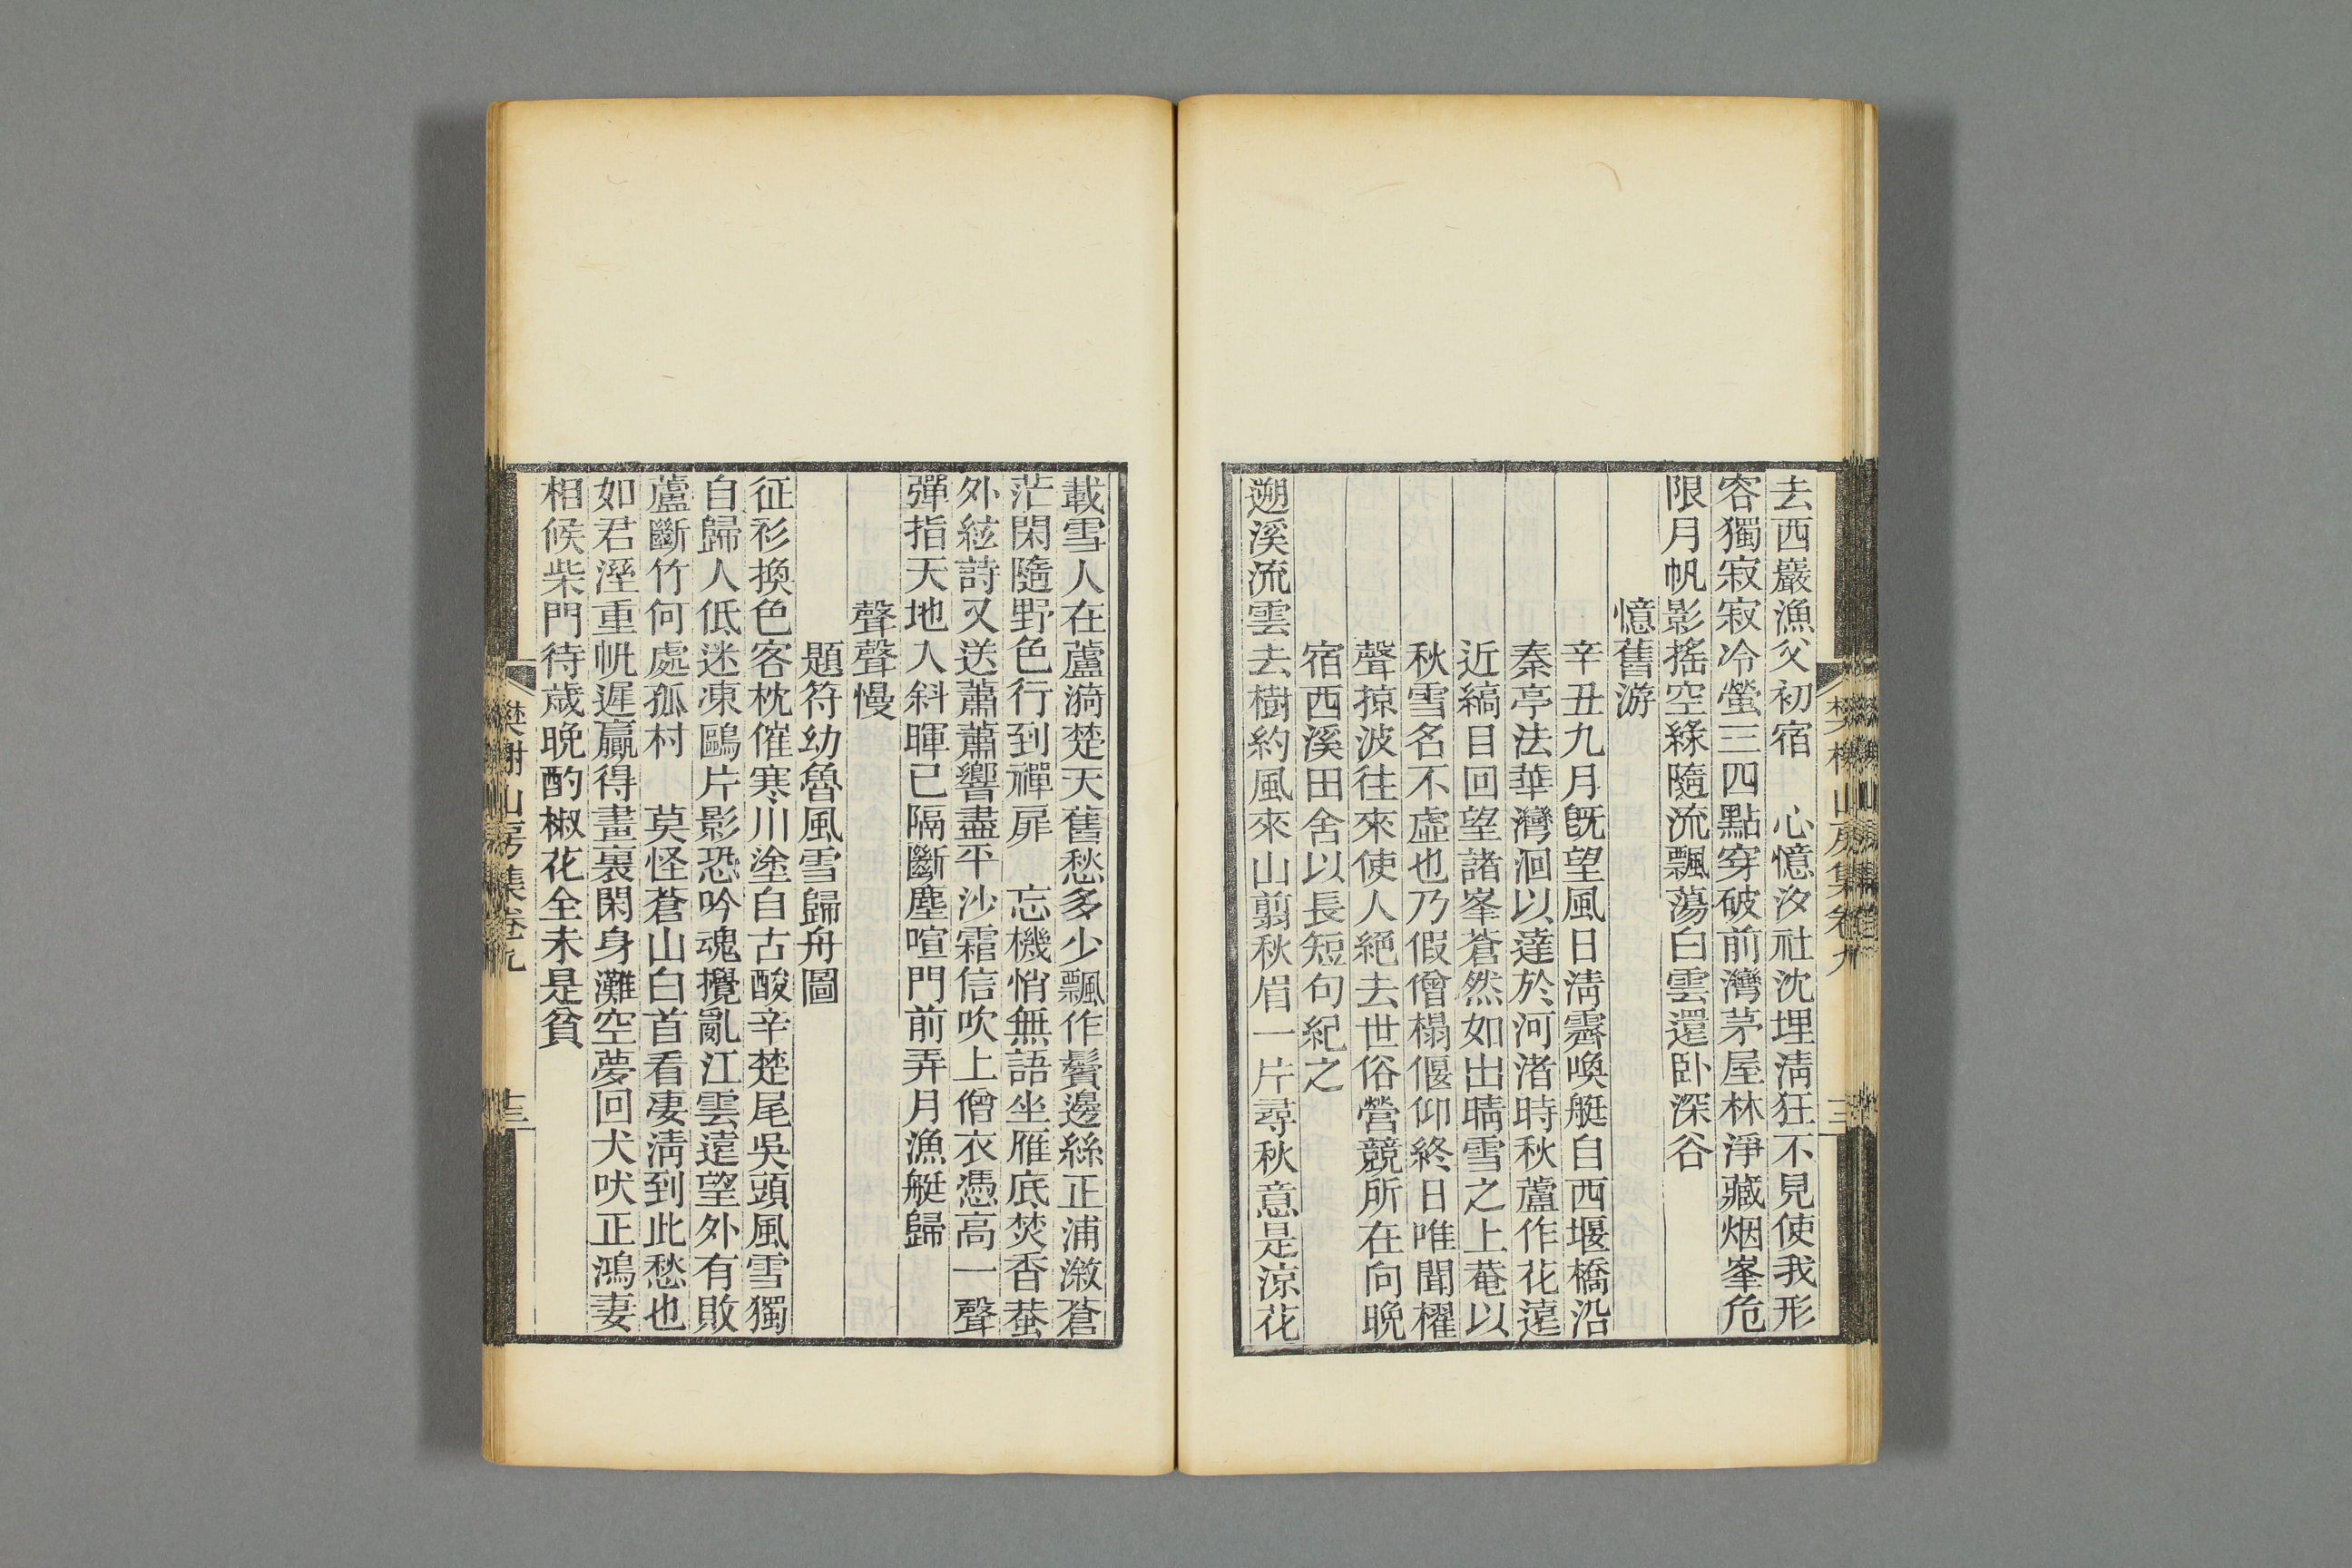 去西巖漁父初宿　心憶汐社沈埋淸狂不見使我形
容獨寂寂冷螢三四點穿破前灣茅屋林淨藏烟峯危
限月帆影搖空綠隨流飄蕩白雲還卧深谷
憶舊游
辛丑九月旣望風日淸霽喚艇自西堰橋沿
秦亭法華灣洄以達於河渚時秋蘆作花遠
近縞目回望諸峯蒼然如出晴雪之上菴以
秋雪名不虛也乃假僧榻偃仰終日唯聞櫂
聲掠波往來使人絕去世俗營競所在向晚
宿西溪田舍以長短句紀之
遡溪流雲去樹約風來山剪秋眉一片尋秋意是涼花
載雪人在蘆漪楚天舊愁多少飄作鬢邊絲正浦漵蒼
茫閑隨野色行到禪扉　忘機悄無語坐雁底焚香蛬
外絃詩又送蕭蕭響盡平沙霜信吹上僧衣憑高一聲
彈指天地入斜暉已隔斷塵喧門前弄月漁艇歸
聲聲慢
題符幼魯風雪歸舟圖
征衫換色客枕催寒川塗自古酸辛楚尾吳頭風雪獨
自歸人低迷凍鷗片影恐吟魂攪亂江雲遠望外有敗
蘆斷竹何處孤村　莫怪蒼山白首看淒淸到此愁也
如君溼重帆遲贏得畫裏閑身灘空夢回犬吠正鴻妻
相候柴門待歲晚酌椒花全未是貧
樊榭山房集卷九
十三